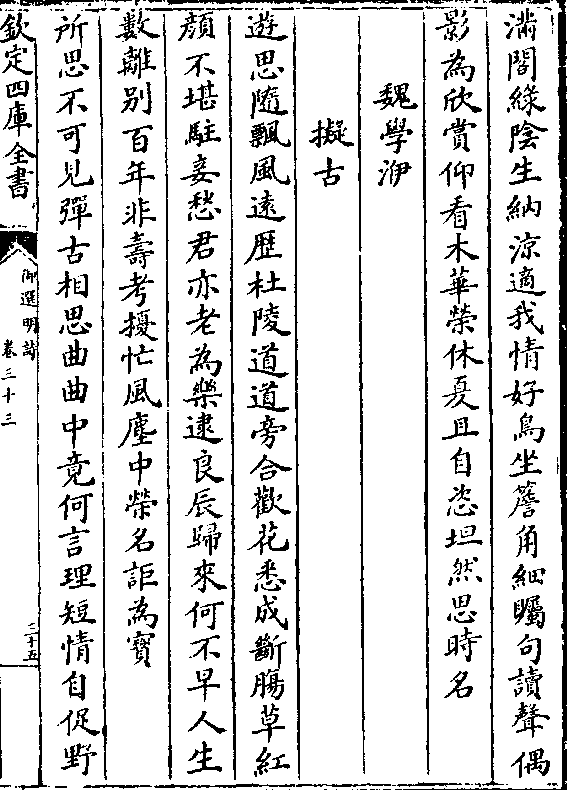 滿閣綠陰生納涼適我情好鳥坐簷角細矚句讀聲偶
影為欣賞仰看木華榮休戛且自恣坦然思時名
魏學洢
擬古
遊思隨飄風遠歷杜陵道道旁合歡花悉成斷腸草紅
顏不堪駐妾愁君亦老為樂逮良辰歸來何不早人生
數離别百年非壽考擾忙風塵中榮名詎為寳
所思不可見彈古相思曲曲中竟何言理短情自促野
欽定四庫全書
御選明詩
卷三十三
三十五